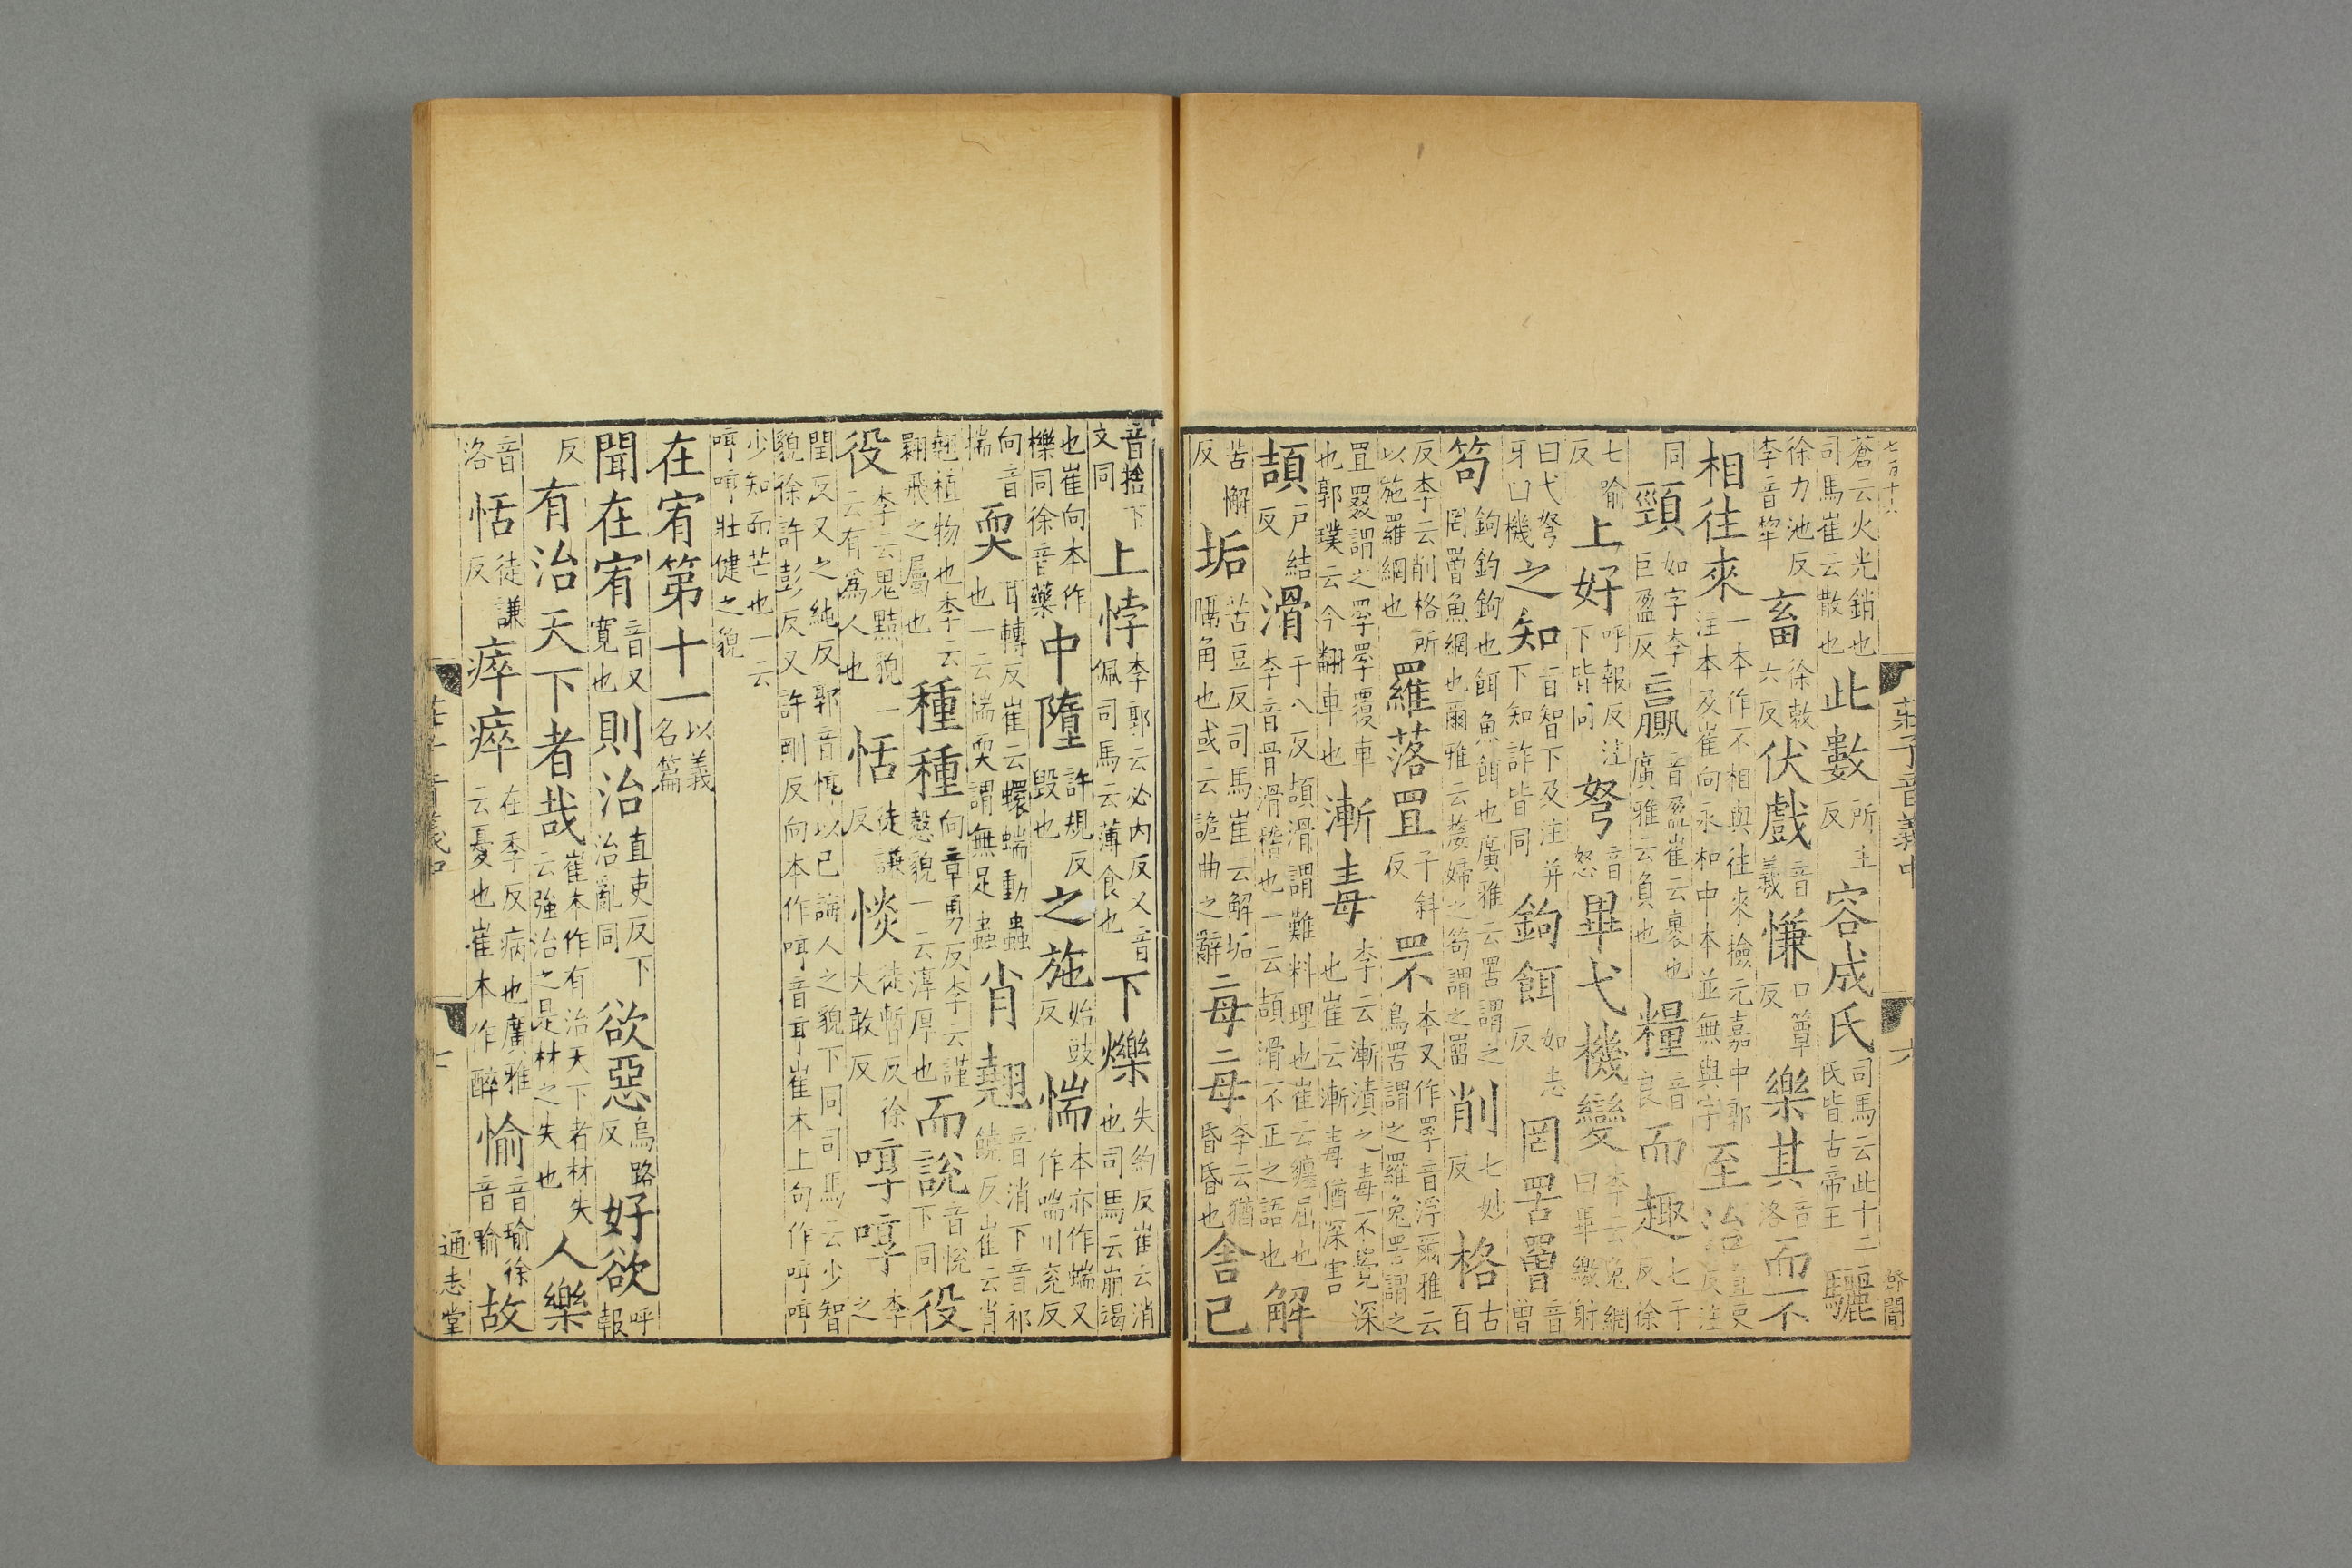 七百十六　莊子音義中　六
蒼云火光銷也司馬崔云散也此數所主反容成氏司馬云此十二氏皆古帝王驪
徐力池反李音犂畜徐敕六反伏戲音羲慊口簟反樂其音洛而不
相往來一本作不相與往來檢元嘉中郭注本及崔向永和中本並無與字至治直吏反注
同頸如字李巨盈反贏音盈崔云裹也廣雅云負也糧音良而趣七于反徐
七喻反上好呼報反注下皆同弩音怒畢弋機變李云兔網曰畢繳射
曰弋弩牙曰機之知音智下及注并下知詐皆同鉤餌如志反罔罟罾音曾
笱鉤鉤鉤也餌魚餌也廣雅云罟謂之罔罾魚網也爾雅云嫠婦之笱謂之罶削七妙反格古百
反李云削格所以施羅網也羅落罝子斜反罘本又作罦音浮爾雅云鳥罟謂之羅兔罟謂之
罝罬謂之罦罦覆車也郭璞云今翻車也漸毒李云漸漬之毒不覺深也崔云漸毒猶深害
頡戶結反滑于八反頡滑謂難料理也崔云纏屈也李音骨滑稽也一云頡滑不正之語也解
苦懈反垢苦豆反司馬崔云解垢隔角也或云詭曲之辭每每李云猶昏昏也舍己
音捨下文同上悖李郭云必內反又音佩司馬云薄食也下爍失約反崔云消也司馬云崩竭
也崔向本作櫟同徐音藥中墮許規反毀也之施始豉反惴本亦作端又作喘川兗反
向音揣耎耳轉反崔云蠉蝡動蟲也一云惴耎謂無足蟲肖翹音消下音祁饒反崔云肖
翹植物也李云翾飛之屬也種種向章勇反李云謹愨貌一云淳厚也而說音悅下同役
役李云鬼黠貌一云有為人也恬徒謙反惔徒暫反徐大敢反啍啍李之
閏反又之純反郭音惇以己誨人之貌下同司馬云少智貌徐許彭反又許剛反向本作哼音亨崔本上句作哼哼
少知而芒也一云哼哼壯健之貌
在宥第十一以義名篇
聞在宥音又寬也則治直吏反下治亂同欲惡烏路反好欲呼報
反有治天下者哉崔本作有治天下者材失云強治之是材之失也人樂
音洛恬徒謙反瘁瘁在季反病也廣雅云憂也崔本作醉愉音瑜徐音喻故
莊子音義中　通志堂